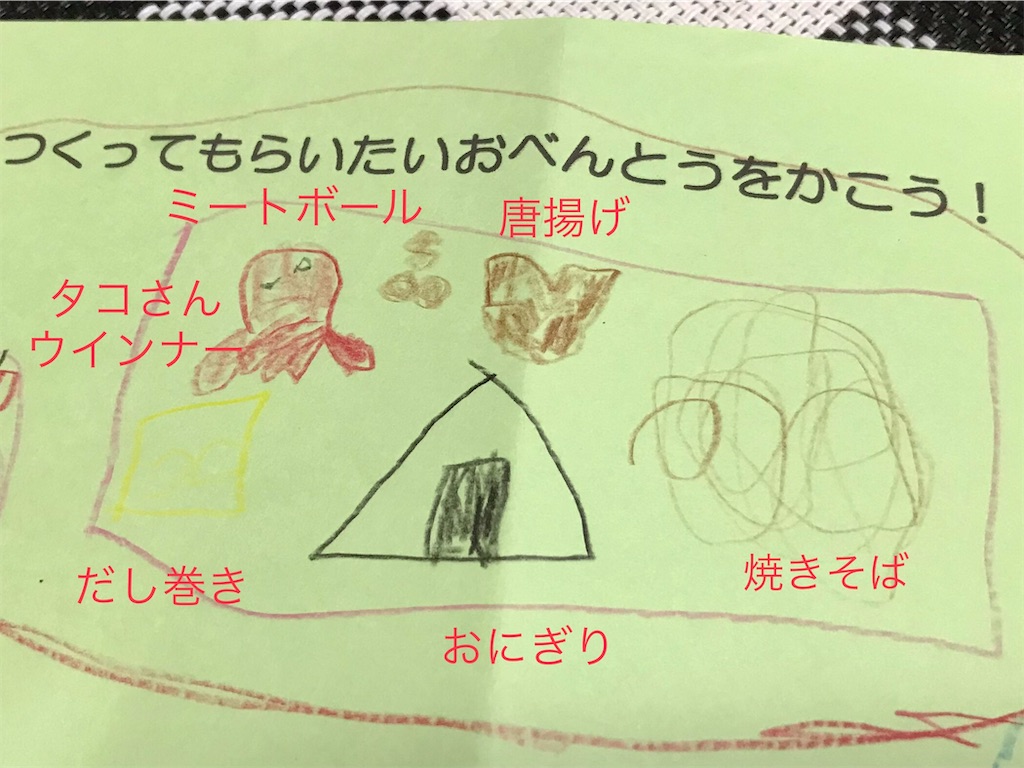 つくってもらいたいおべんとうをかこう！
ミートボール
唐揚げ
タコさん
ウインナー
だし巻き
焼きそば
おにぎり